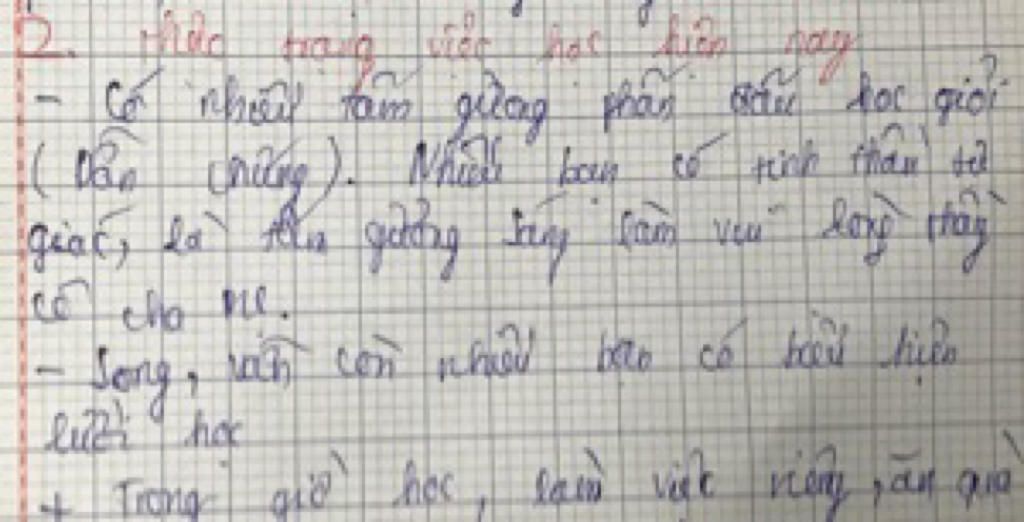 2. Thực trạng việc học hiện nay
- Có nhiều tấm gương phấn đấu học giỏi
(Dẫn chứng). Nhiều bạn có tinh thần tự
giác, là tấm gương sáng làm vui lòng thầy
cô cha mẹ.
- Song, vẫn còn nhiều bạn có biểu hiện
lười học
+ Trong giờ học, làm việc riêng, ăn quà